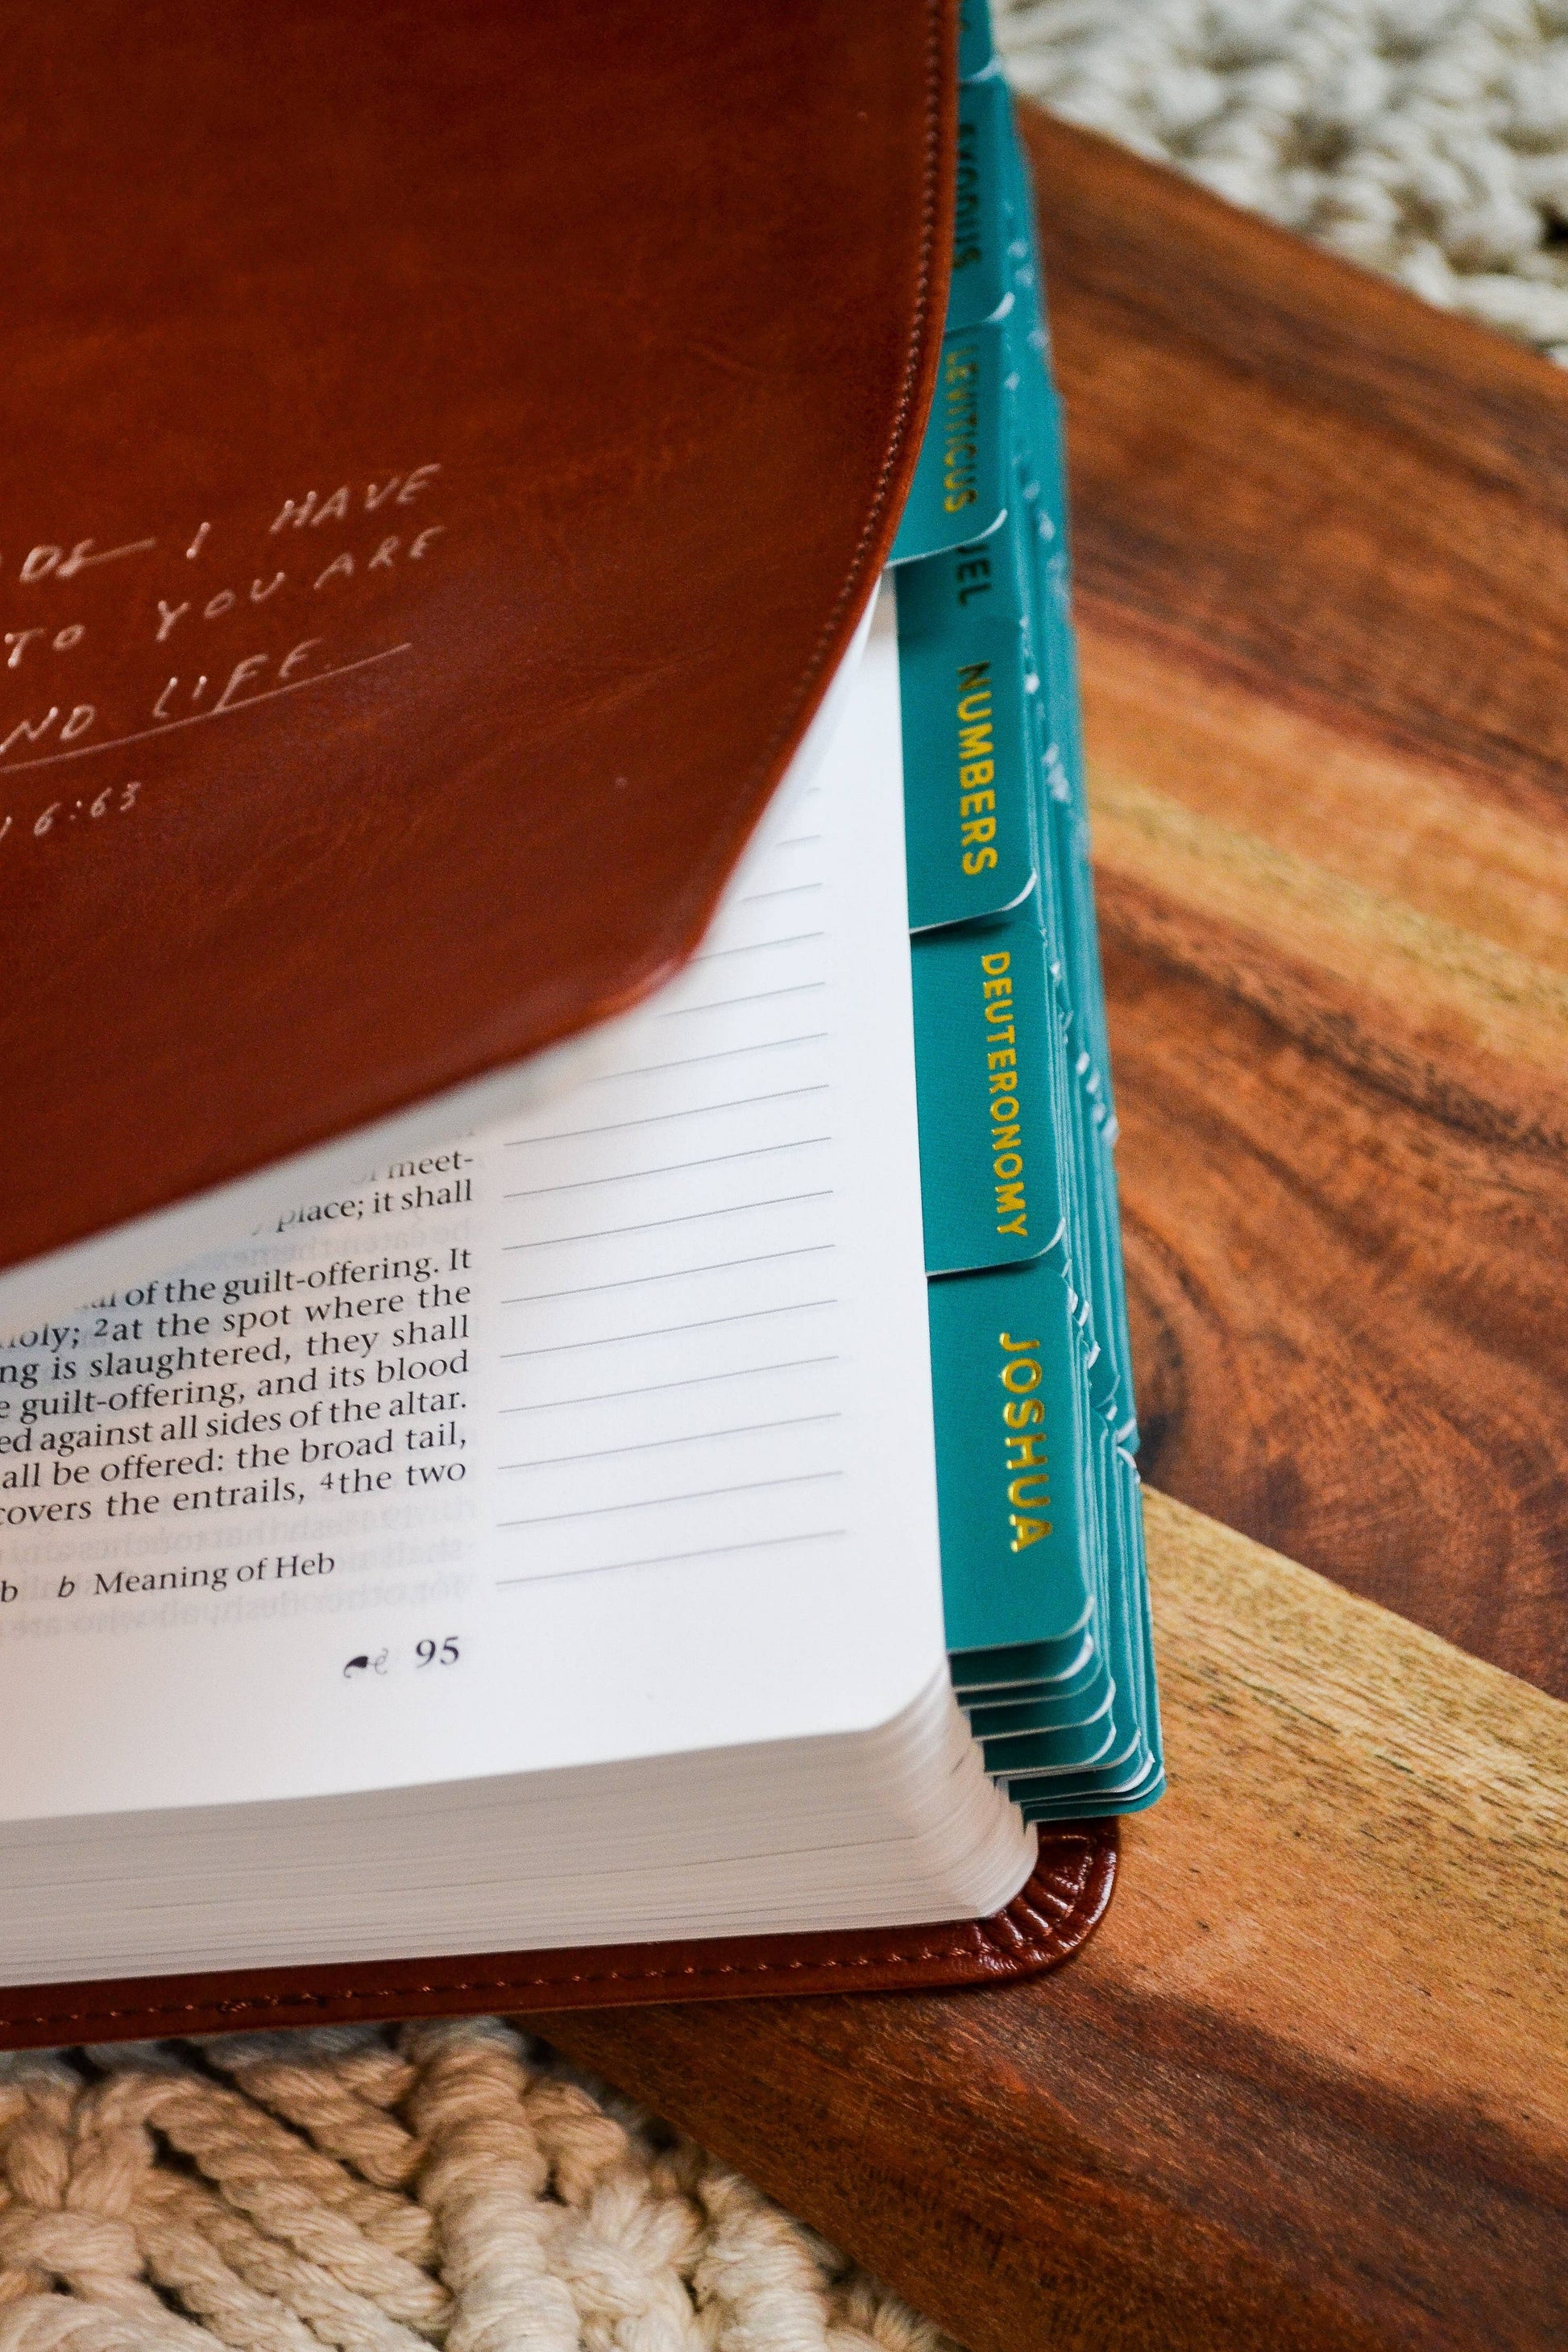 I HAVE
TO YOU ARE
LIFE
6:63
EXODUS
LEVITICUS
NUMBERS
DEUTERONOMY
JOSHUA
meet-
place; it shall
of the guilt-offering. It
2at the spot where the
is slaughtered, they shall
guilt-offering, and its blood
against all sides of the altar.
be offered: the broad tail,
covers the entrails, 4the two
b b Meaning of Heb
95